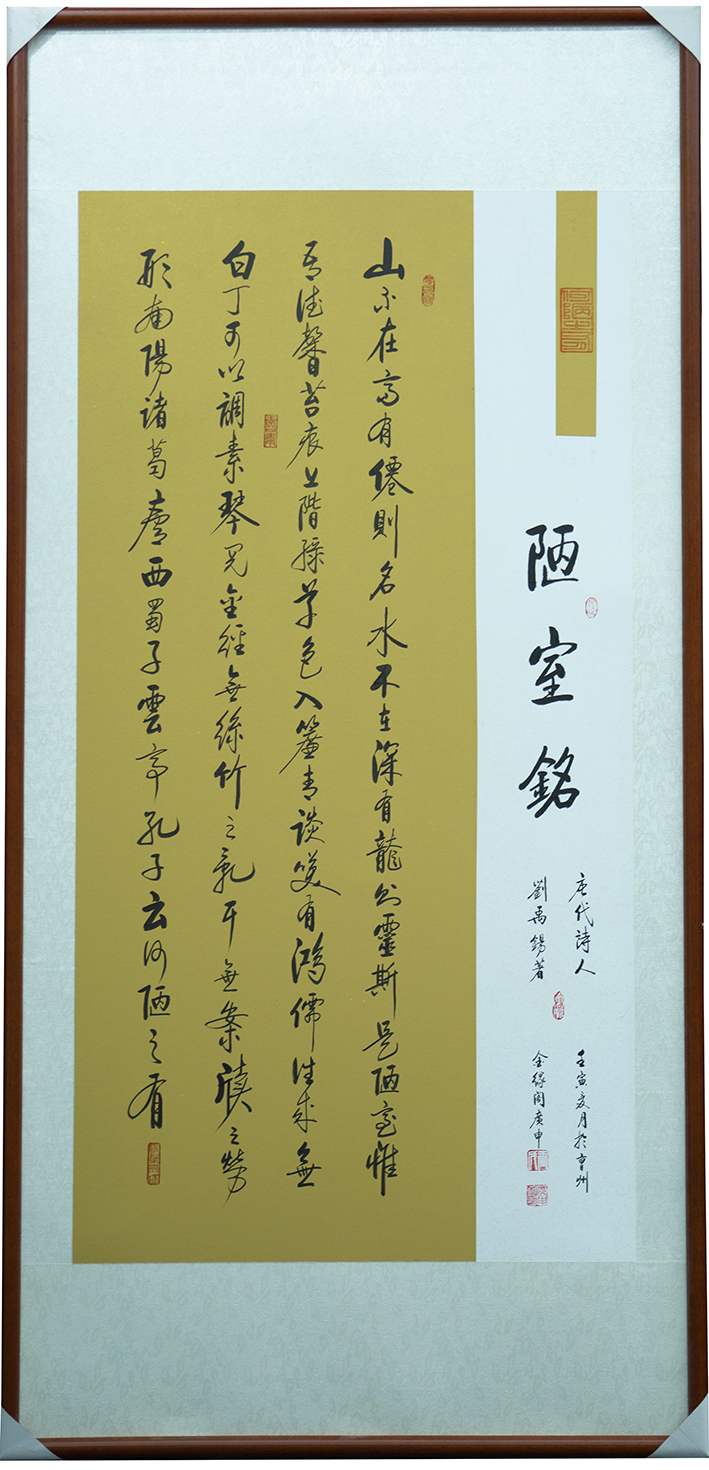 何陋之有
陋室銘
唐代詩人
劉禹錫著
壬寅夏月於州
金得閣廣申
山不在高有僊則名水不在深有龍則靈斯是陋室惟
吾德馨苔痕上階綠草色入簾青談笑有鴻儒往來無
白丁可以調素琴閱金經無絲竹之亂耳無案牘之勞
形南陽諸葛廬西蜀子雲亭孔子云何陋之有